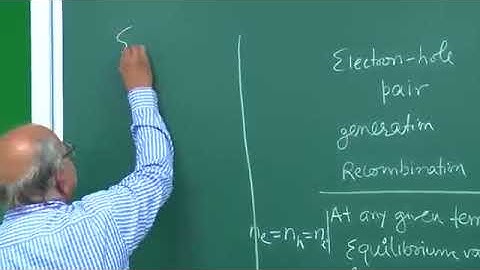 S
Electron-hole
pair
generation
Recombination
At any given
nₑ = nₕ = nᵢ
Equilibrium